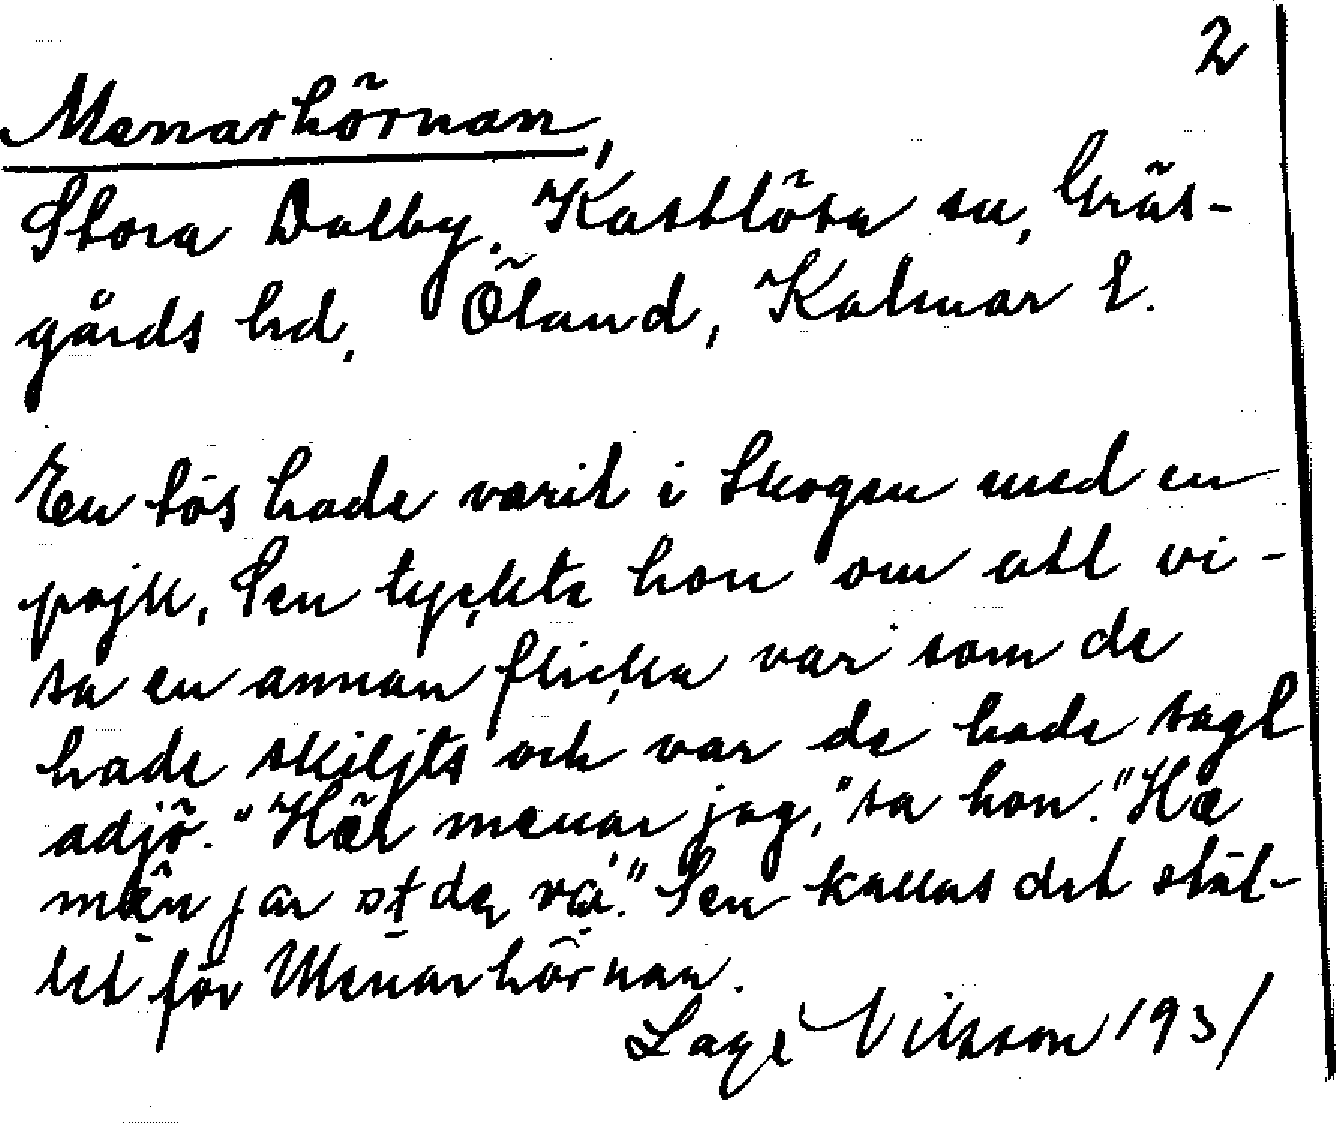 2
Menarhörnan,
Stora Dalby, Kastlösa sn, Gräs-
gårds hd, Öland, Kalmar l.
En tös hade varit i skogen med en
pojk. Sen tyckte hon om att vi-
sa en annan flicka var som de
hade skiljts och var de hade sagt
adjö. "Här menar jag," sa hon. "Hä
män jar
Sen kallas det stäl-
let för Menarhörnan.
Lage Nilsson 1931